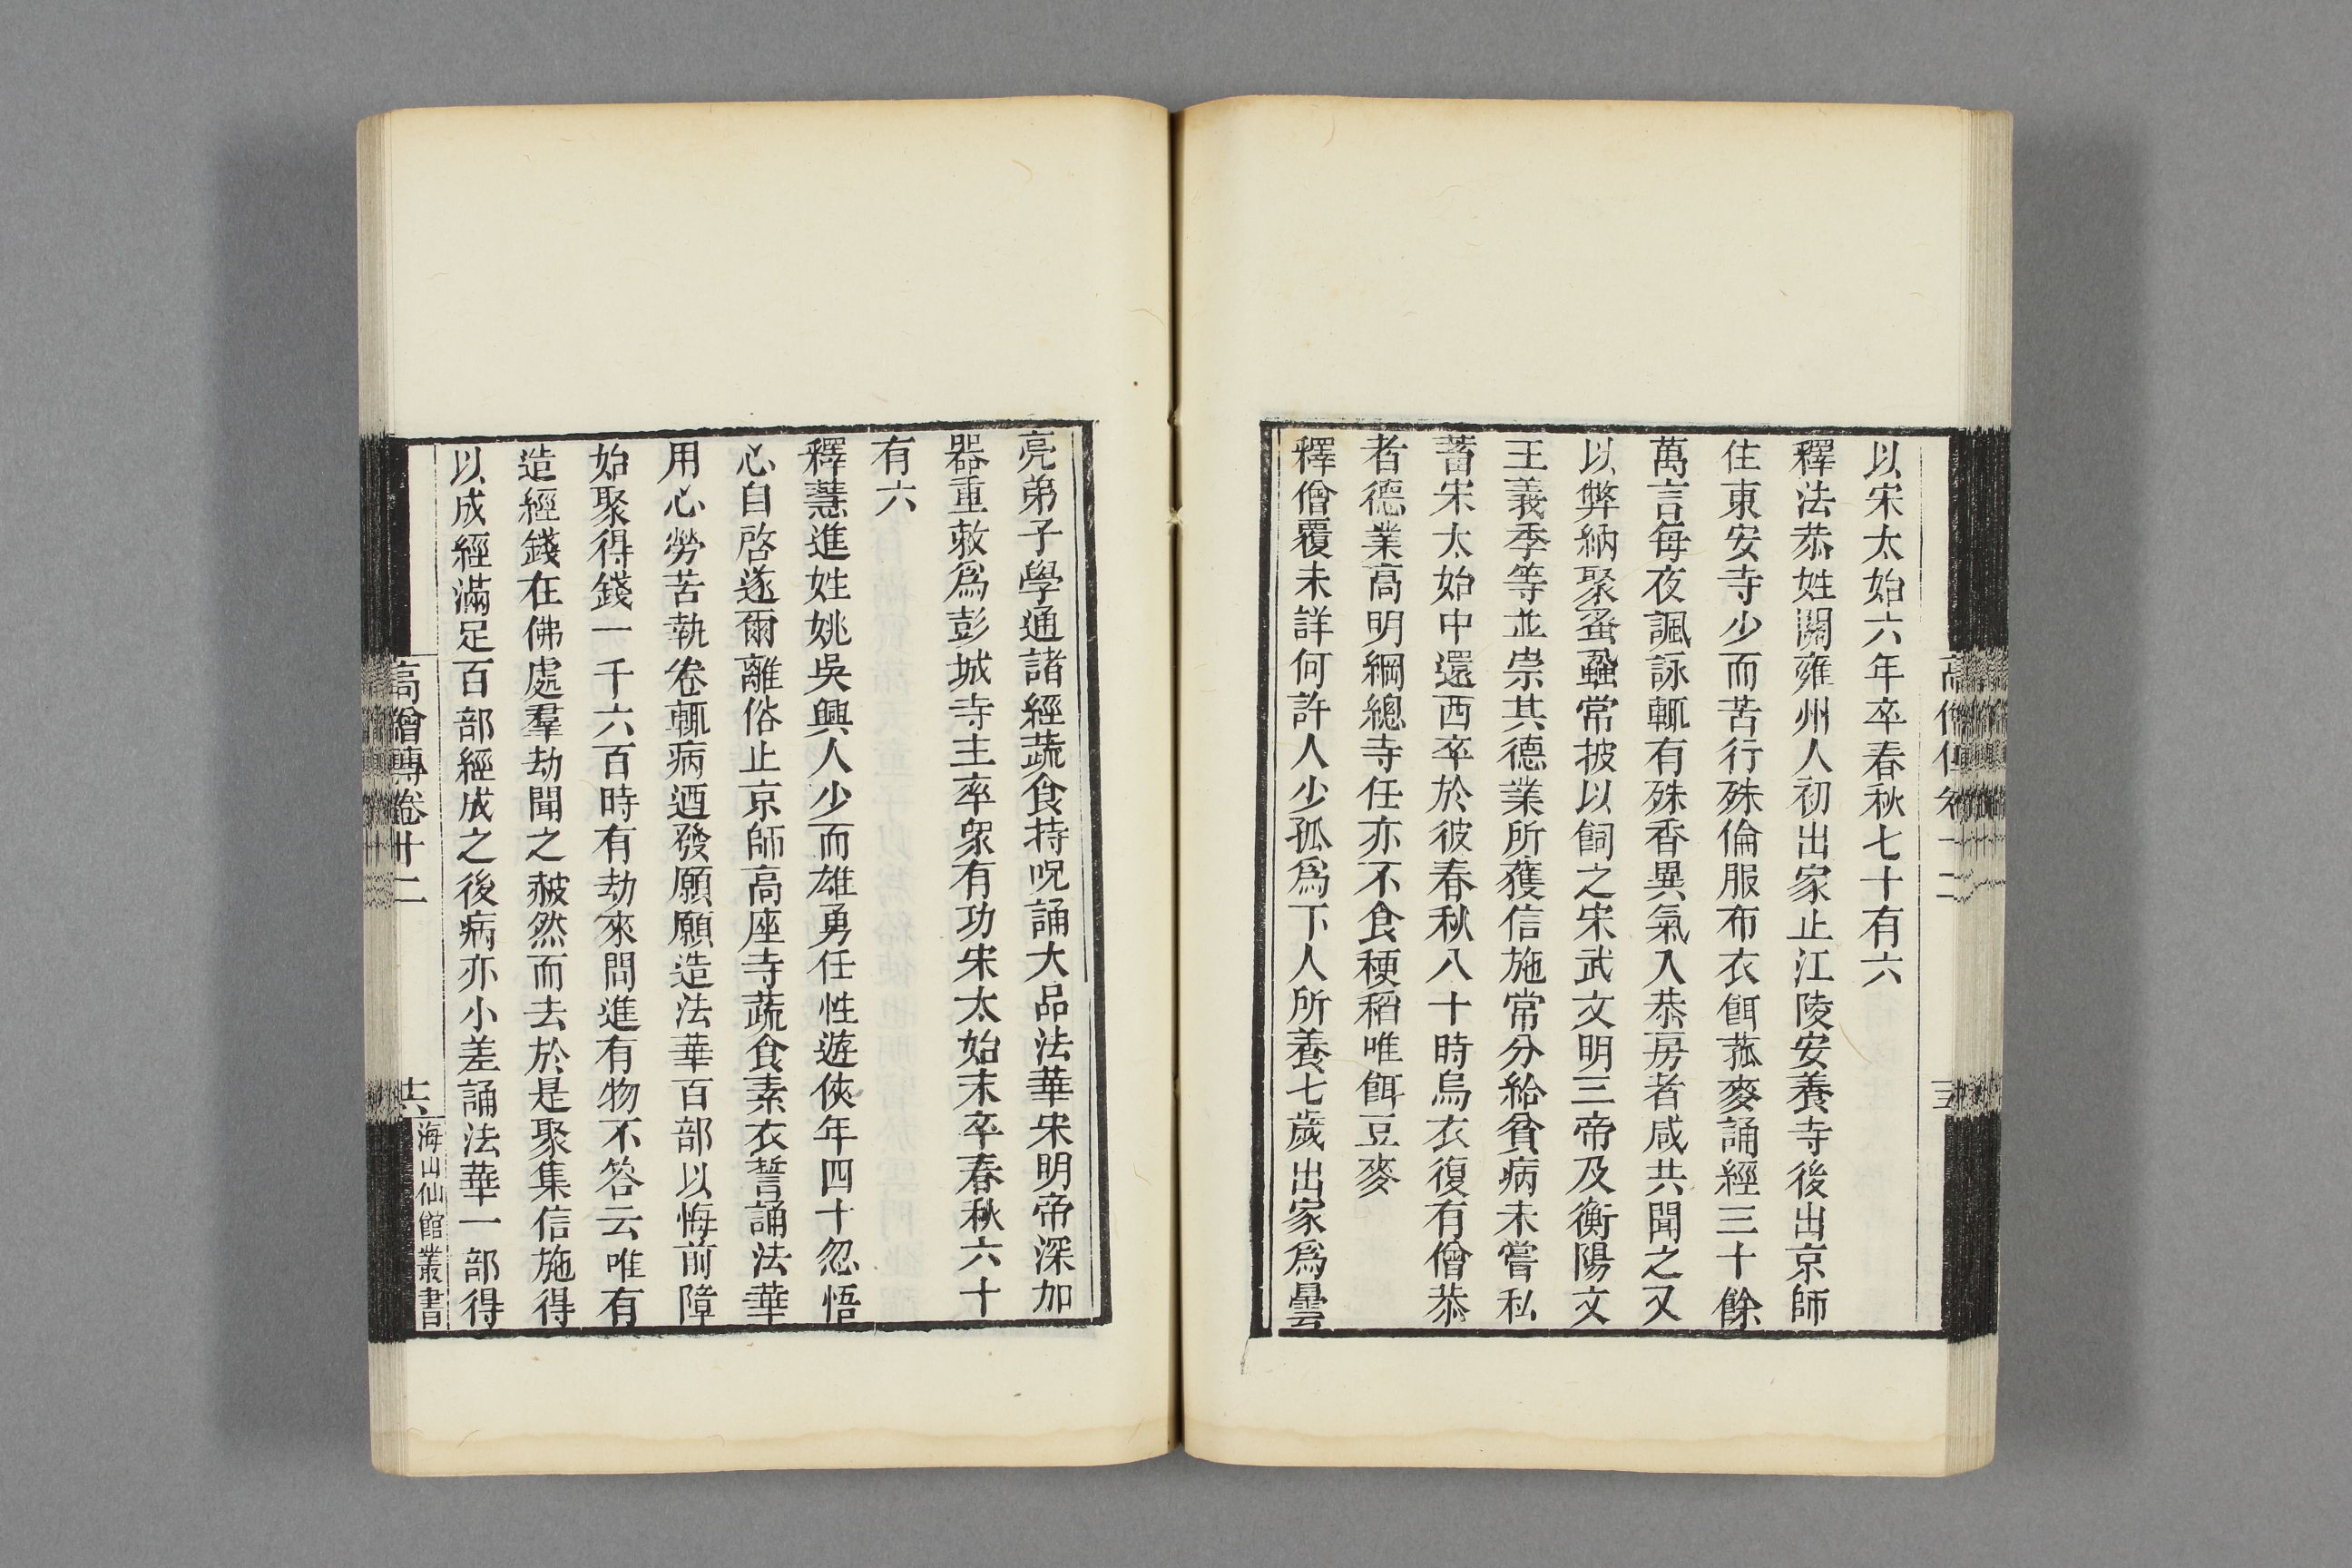 以宋太始六年卒春秋七十有六
釋法恭姓關雍州人初出家止江陵安養寺後出京師
住東安寺少而苦行殊倫服布衣餌菰麥誦經三十餘
萬言每夜諷詠輒有殊香異氣入恭房者咸共聞之又
以弊納聚蚤蝨常披以飼之宋武文明三帝及衡陽文
王義季等並崇其德業所獲信施常分給貧病未嘗私
蓄宋太始中還西卒於彼春秋八十時烏衣復有僧恭
者德業高明綱總寺任亦不食稉稻唯餌豆麥
釋僧覆未詳何許人少孤爲下人所養七歲出家爲曇
亮弟子學通諸經蔬食持呪誦大品法華宋明帝深加
器重敕爲彭城寺主率衆有功宋太始末卒春秋六十
有六
釋慧進姓姚吳興人少而雄勇任性遊俠年四十忽悟
心自啓遂爾離俗止京師高座寺蔬食素衣誓誦法華
用心勞苦執卷輒病迺發願願造法華百部以悔前障
始聚得錢一千六百時有劫來問進有物不答云唯有
造經錢在佛處羣劫聞之赧然而去於是聚集信施得
以成經滿足百部經成之後病亦小差誦法華一部得
高僧傳卷十二
共
海山仙館叢書